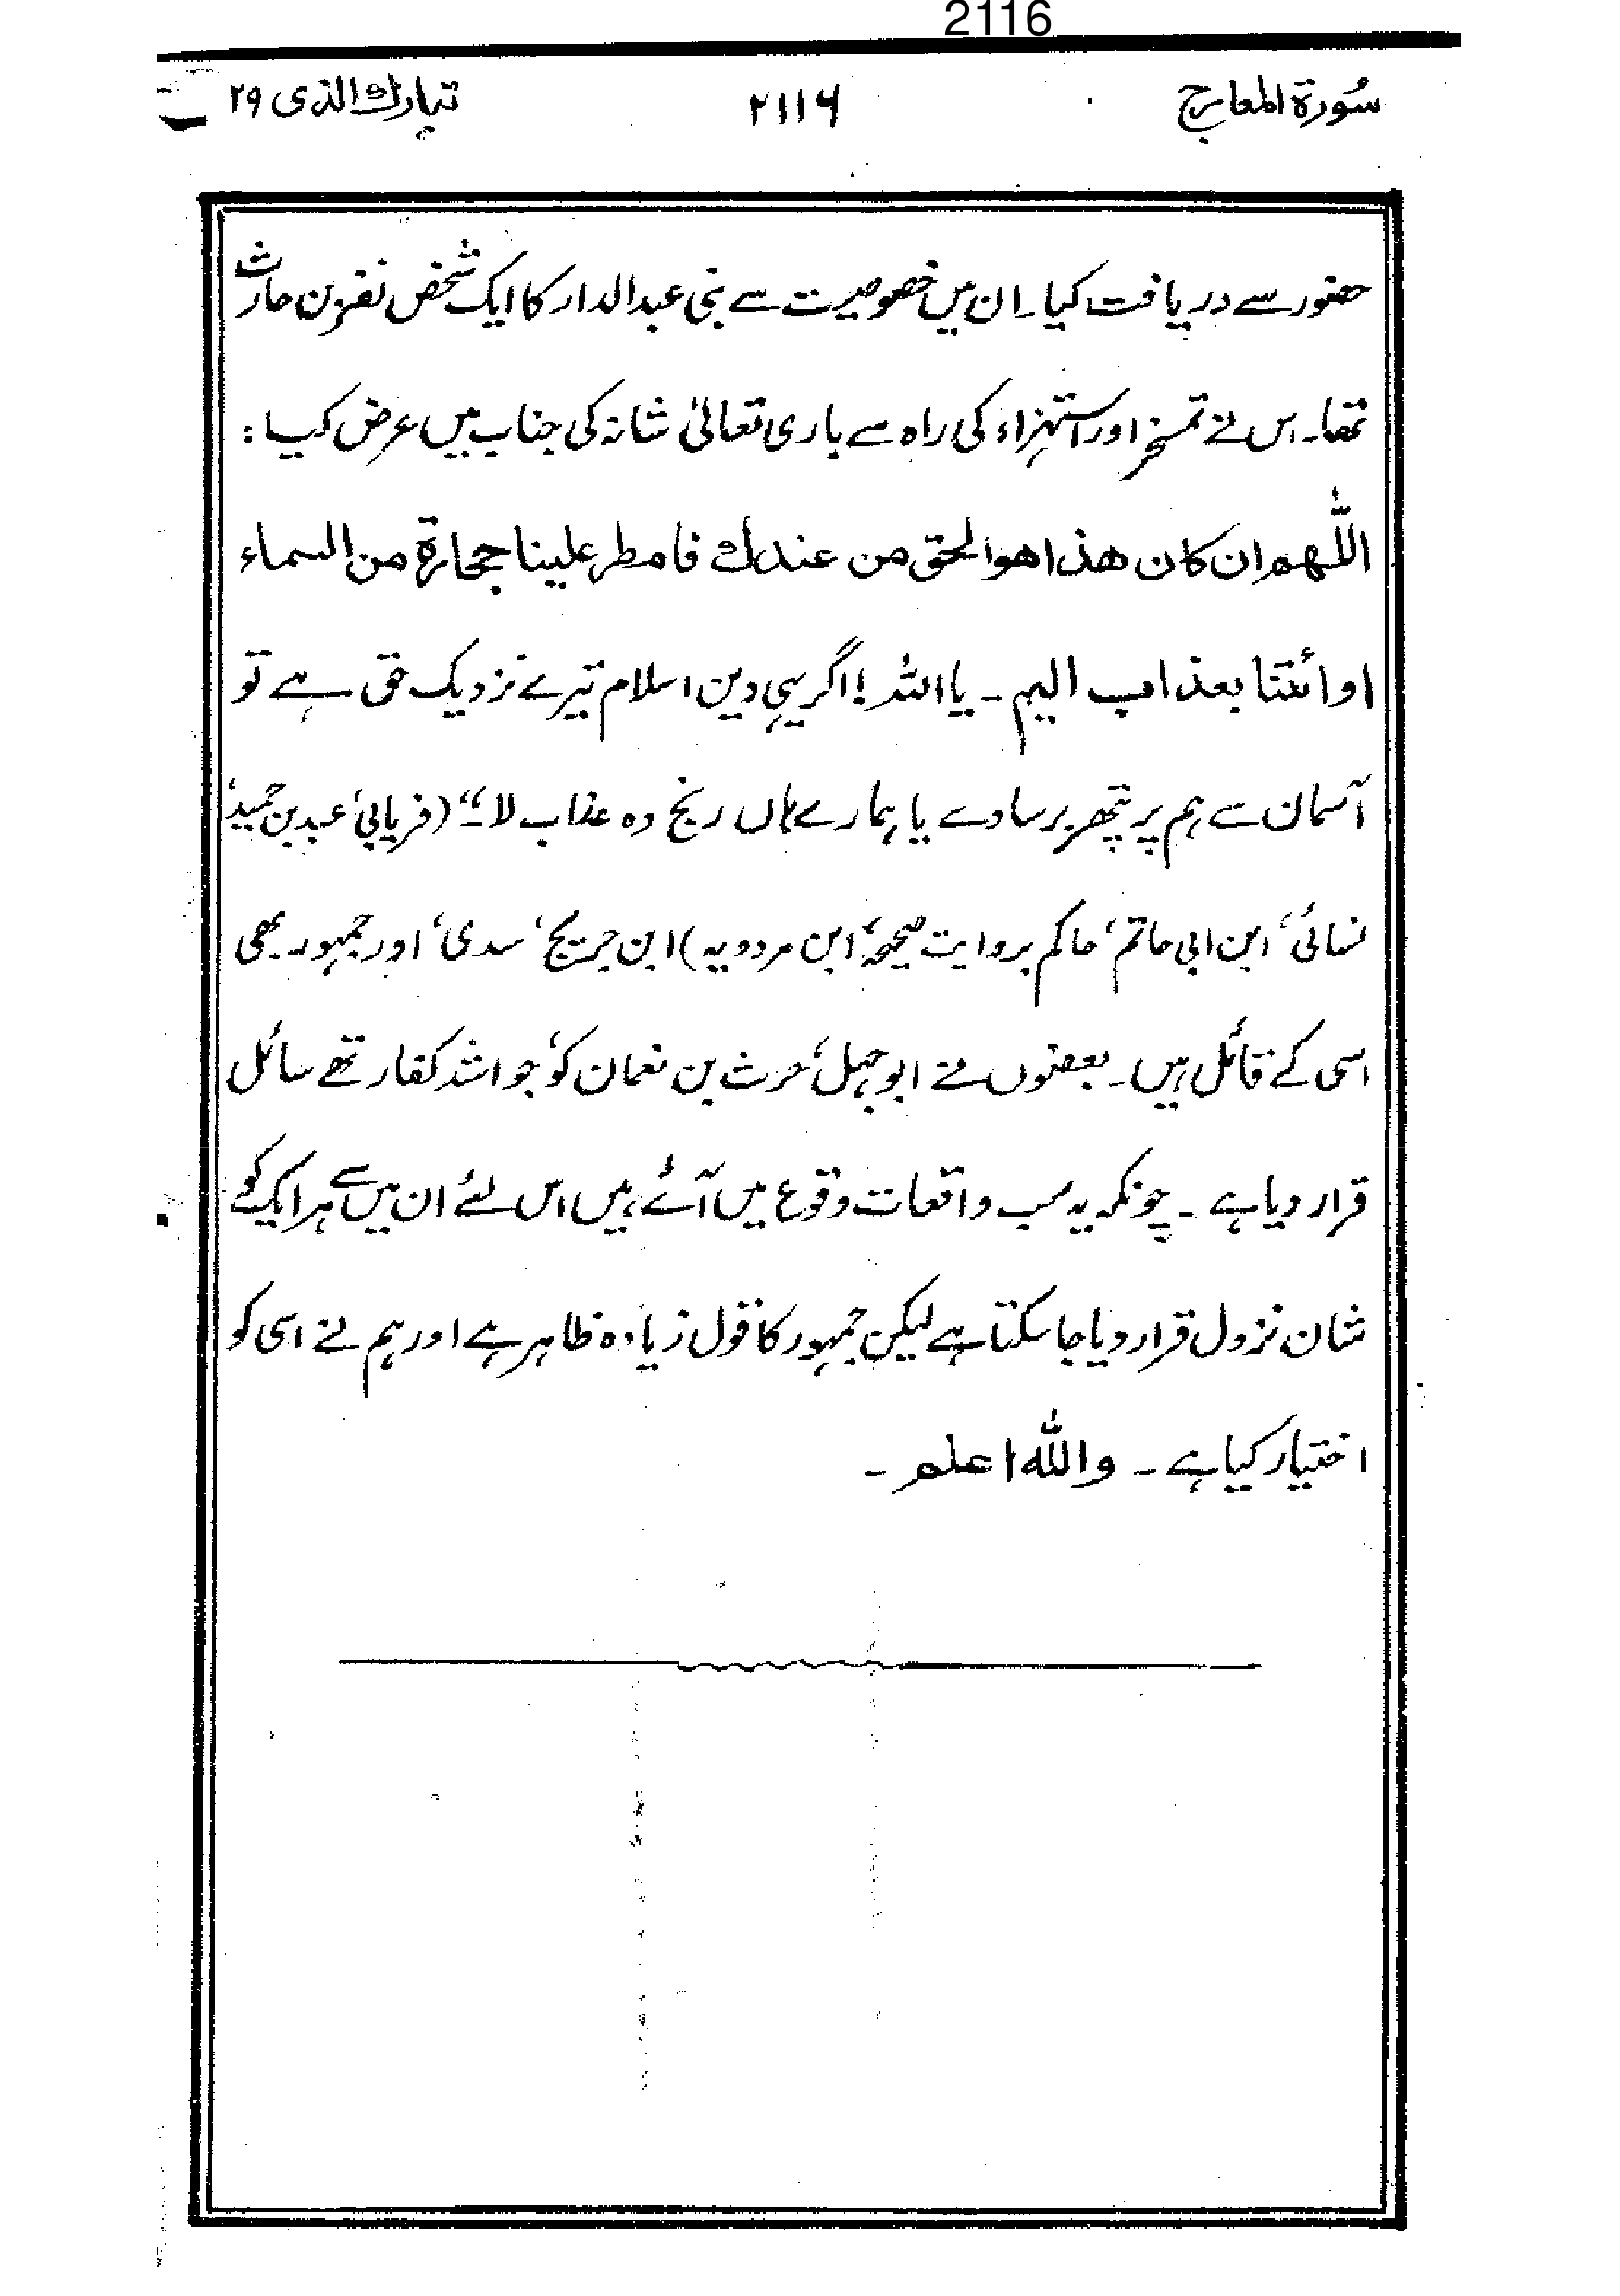 2116
سُورة المعارج ۲۱۱۶ تبارك الذی ۲۹
حضور سے دریافت کیا۔ ان میں خصوصیت سے بنی عبدالدار کا ایک شخص نضر بن حارث
تھا۔ اس نے تمسخر اور استہزاء کی راہ سے باری تعالیٰ شانہ کی جناب میں عرض کیا :
اللّٰهم ان كان هذا هو الحق من عندك فامطر علينا حجارة من السماء
او ائتنا بعذاب اليم ۔ یا اللہ ! اگر یہی دین اسلام تیرے نزدیک حق ہے تو
آسمان سے ہم پر پتھر برسا دے یا ہمارے ہاں رنج دہ عذاب لا ۔“ (فریابی‘ عبد بن حمید‘
نسائی‘ ابن ابی حاتم‘ حاکم بروایت صحیحہ‘ ابن مردویہ) ابن جریج‘ سدی‘ اور جمہور بھی
اسی کے قائل ہیں۔ بعضوں نے ابو جہل‘ حرث بن نعمان کو‘ جو اشد کفار تھے سائل
قرار دیا ہے ۔ چونکہ یہ سب واقعات وقوع میں آئے ہیں اس لئے ان میں سے ہر ایک کو
شان نزول قرار دیا جا سکتا ہے لیکن جمہور کا قول زیادہ ظاہر ہے اور ہم نے اسی کو
اختیار کیا ہے ۔ والله اعلم ۔